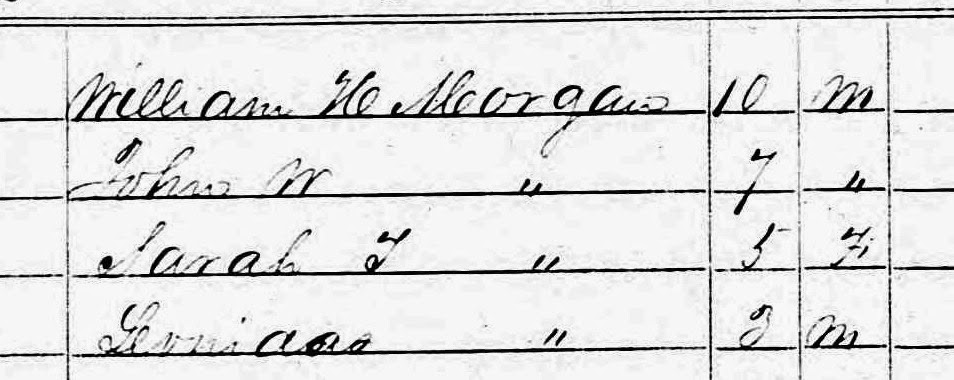 William H Morgan 10 M
John W " 7 "
Sarah F " 5 F
" 3 M